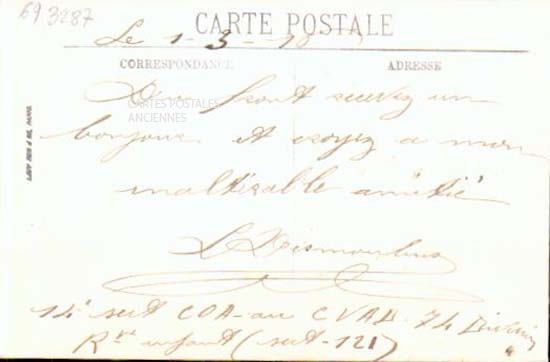 69 3287
CARTE POSTALE
Le 1-3-18
CORRESPONDANCE
ADRESSE
Du front recevez un
CARTES POSTALES
ANCIENNES
bonjour et croyez a mon
inaltérable amitié
L Desmoulins
LEVY FILS & CIE, PARIS
14e sect COA au CVAD 74 Division
Rve infant (sect-121)